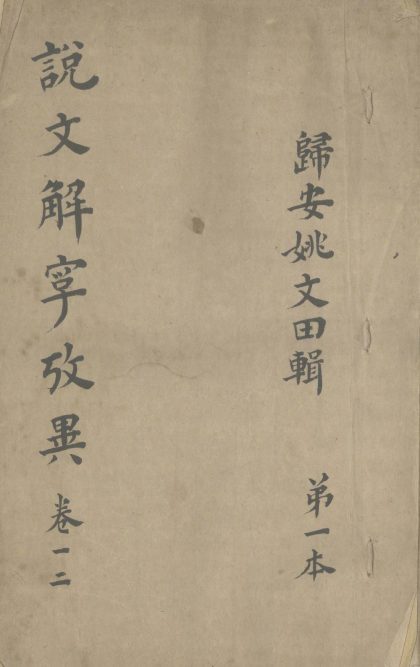 歸安姚文田輯 第一本
說文解字攷異 卷一二